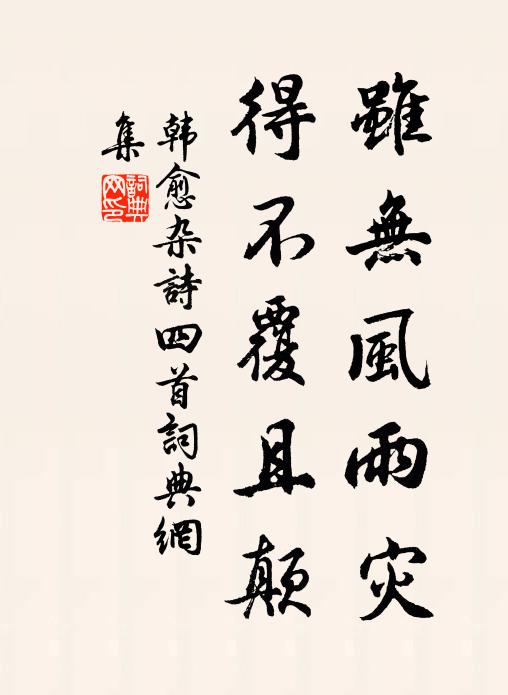 雖無風雨灾
得不覆且颠
韩愈杂詩四首詞典網
集
詞典網印